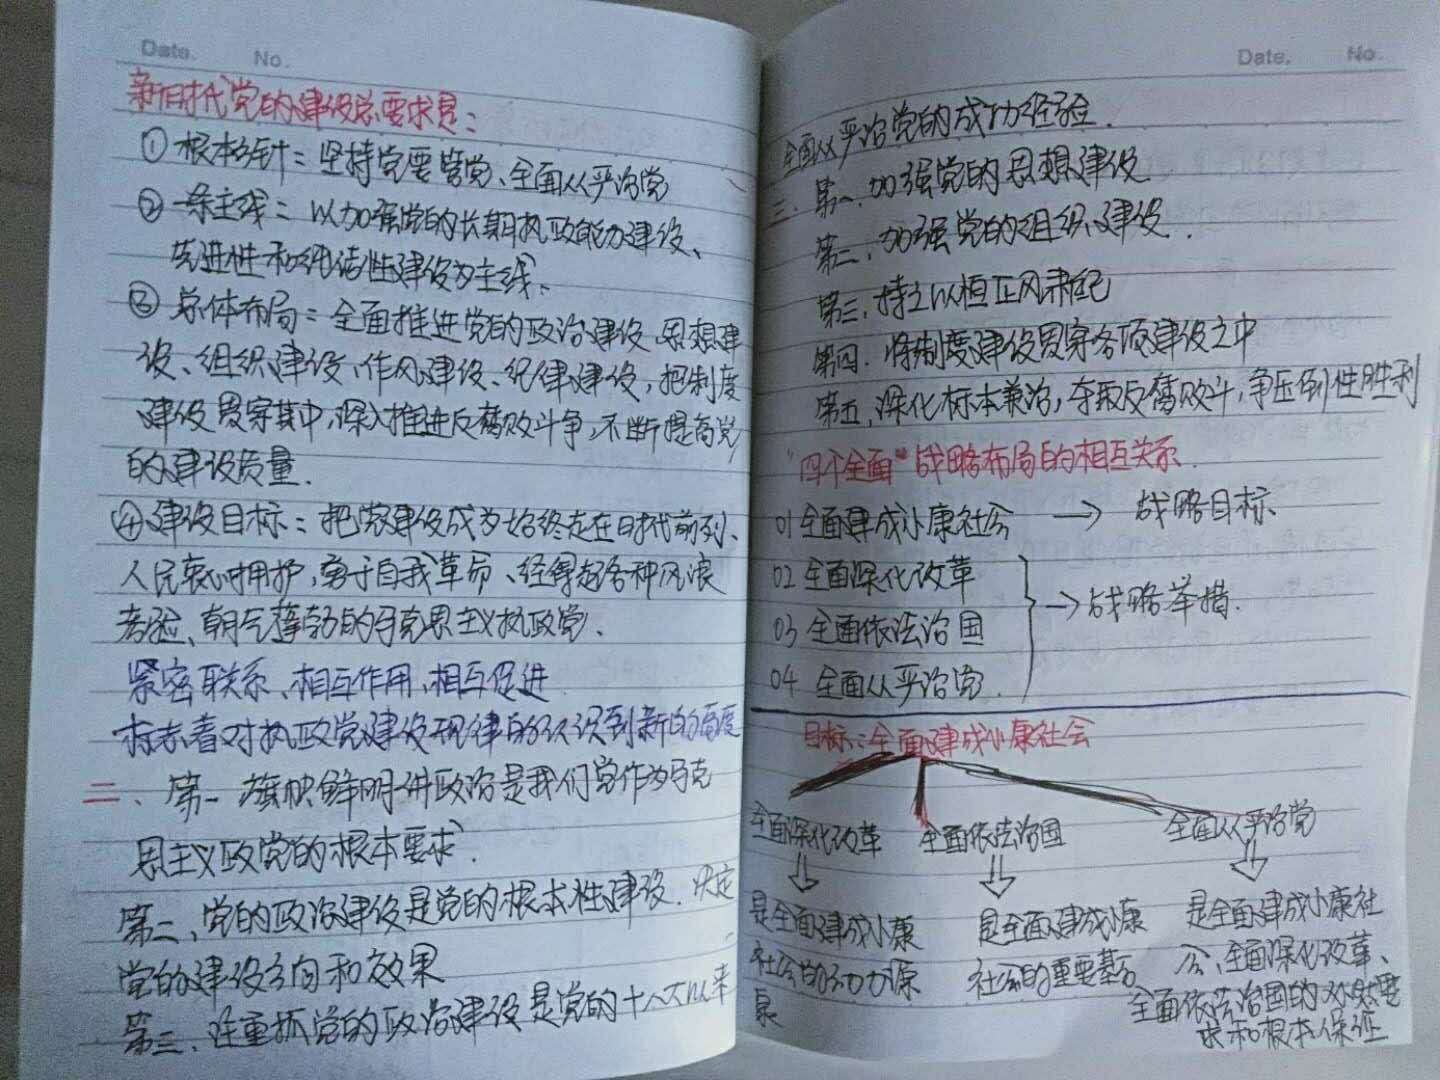 Date. No.
新旧时代党的建设总要求是：
① 根本方针：坚持党要管党、全面从严治党
② 一条主线：以加强党的长期执政能力建设、
先进性和纯洁性建设为主线、
③ 总体布局：全面推进党的政治建设、思想建
设、组织建设、作风建设、纪律建设，把制度
建设贯穿其中，深入推进反腐败斗争，不断提高党
的建设质量.
④ 建设目标：把党建设成为始终走在时代前列、
人民衷心拥护，勇于自我革命、经得起各种风浪
考验、朝气蓬勃的马克思主义执政党.
紧密联系、相互作用、相互促进
标志着对执政党建设规律的认识到新的高度
二、第一 旗帜鲜明讲政治是我们党作为马克
思主义政党的根本要求.
第二、党的政治建设是党的根本性建设. 决定
党的建设方向和效果
第三、注重抓党的政治建设是党的十八大以来
Date. No.
全面从严治党的成功经验.
三. 第一.加强党的思想建设
第二、加强党的组织建设.
第三，持之以恒正风肃纪
第四. 将制度建设贯穿各项建设之中
第五，深化标本兼治，夺取反腐败斗，争压倒性胜利
"四个全面"战略布局的相互关系.
01 全面建成小康社会 → 战略目标
02 全面深化改革
03 全面依法治国 → 战略举措.
04 全面从严治党.
目标：全面建成小康社会
全面深化改革 全面依法治国 全面从严治党
是全面建成小康 是全面建成小康 是全面建成小康社
社会的动力源 社会的重要基石 会、全面深化改革、
泉 全面依法治国的必然要
求和根本保证